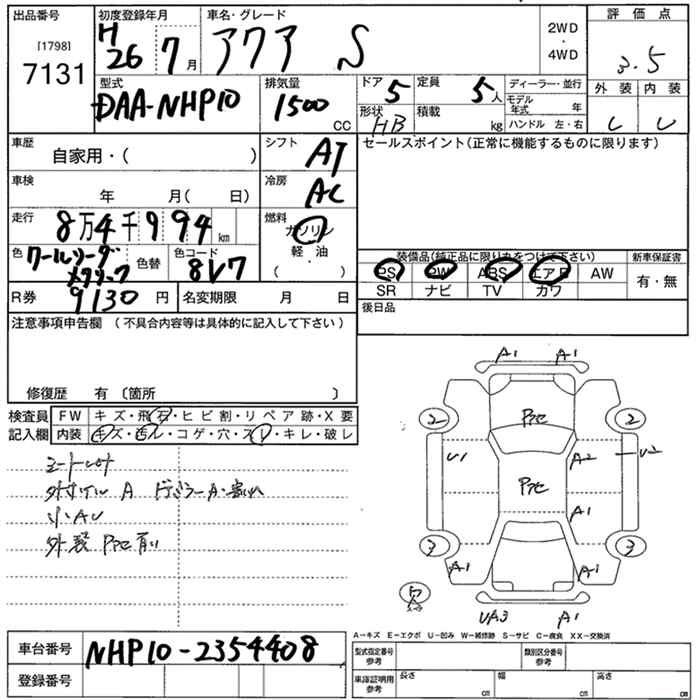 出品番号
[1798]
7131
初度登録年月
H 26 7月
車名・グレード
アクア S
2WD
・
4WD
評価点
3.5
外装 内装
型式
DAA-NHP10
排気量
1500
CC
ドア 5
定員 5人
形状 HB
積載 kg
ディーラー・並行
モデル年式 年
ハンドル 左・右
車歴
自家用・( )
シフト
AT
セールスポイント(正常に機能するものに限ります)
車検
年 月( 日)
冷房
AC
走行
8万4千994km
燃料
ガソリン
軽油
( )
色
クールソーダメタリック
色替
色コード
8V7
装備品(純正品に限り丸をつけて下さい)
新車保証書
PS PW ABS エアB AW
SR ナビ TV カワ
有・無
R券 9130円
名変期限 月 日
後日品
注意事項申告欄(不具合内容等は具体的に記入して下さい)
修復歴 有〔箇所 〕
検査員記入欄
FW キズ・飛石・ヒビ割・リペア跡・X要
内装 キズ・汚レ・コゲ・穴・スレ・キレ・破レ
A
小AU
外装
A1 A1
2 2
U1 A2 U2
A1
3 3
A1 A1
UA3 A1
A-キズ E-エクボ U-凹み W-補修跡 S-サビ C-腐食 XX-交換済
車台番号
NHP10-2354408
登録番号
型式指定番号
参考
類別区分番号
参考
車庫証明用
参考
長さ cm
幅 cm
高さ cm